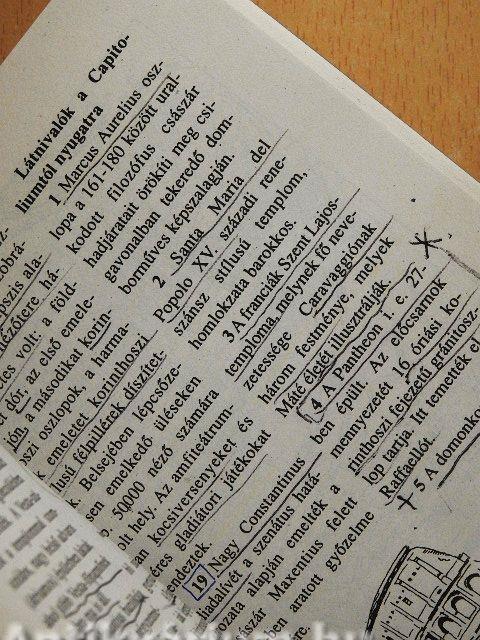 Látnivalók a Capito-
liumtól nyugatra
1 Marcus Aurelius osz-
lopa a 161-180 között ural-
kodott filozófus császár
hadjáratait örökíti meg csi-
gavonalban tekeredő dom-
borműves képszalagján.
2 Santa Maria del
Popolo XV. századi rene-
szánsz stílusú templom,
homlokzata barokkos.
3 A franciák Szent Lajos-
temploma, melynek fő neve-
zetessége Caravaggiónak
három festménye, melyek
Máté életét illusztrálják.
4 A Pantheon i. e. 27-
ben épült. Az előcsarnok
mennyezetét 16 óriási ko-
rinthoszi fejezetű gránitosz-
lop tartja. Itt temették el
Raffaellót.
5 A domonko
pszis ala-
zőtere há-
es volt: a föld-
dór, az első emele-
a másodikat korin-
szi oszlopok, a harma-
emeletet korinthoszi
usú félpillérek díszítet-
k. Belsejében lépcsőze-
sen emelkedő üléseken
50000 néző számára
lt hely. Az amfiteátrum-
an kocsiversenyeket és
res gladiátori játékokat
endeztek.
19 Nagy Constantinus
diadalívét a szenátus hatá-
rozata alapján emelték a
császár Maxentius felett
ben aratott győzelme